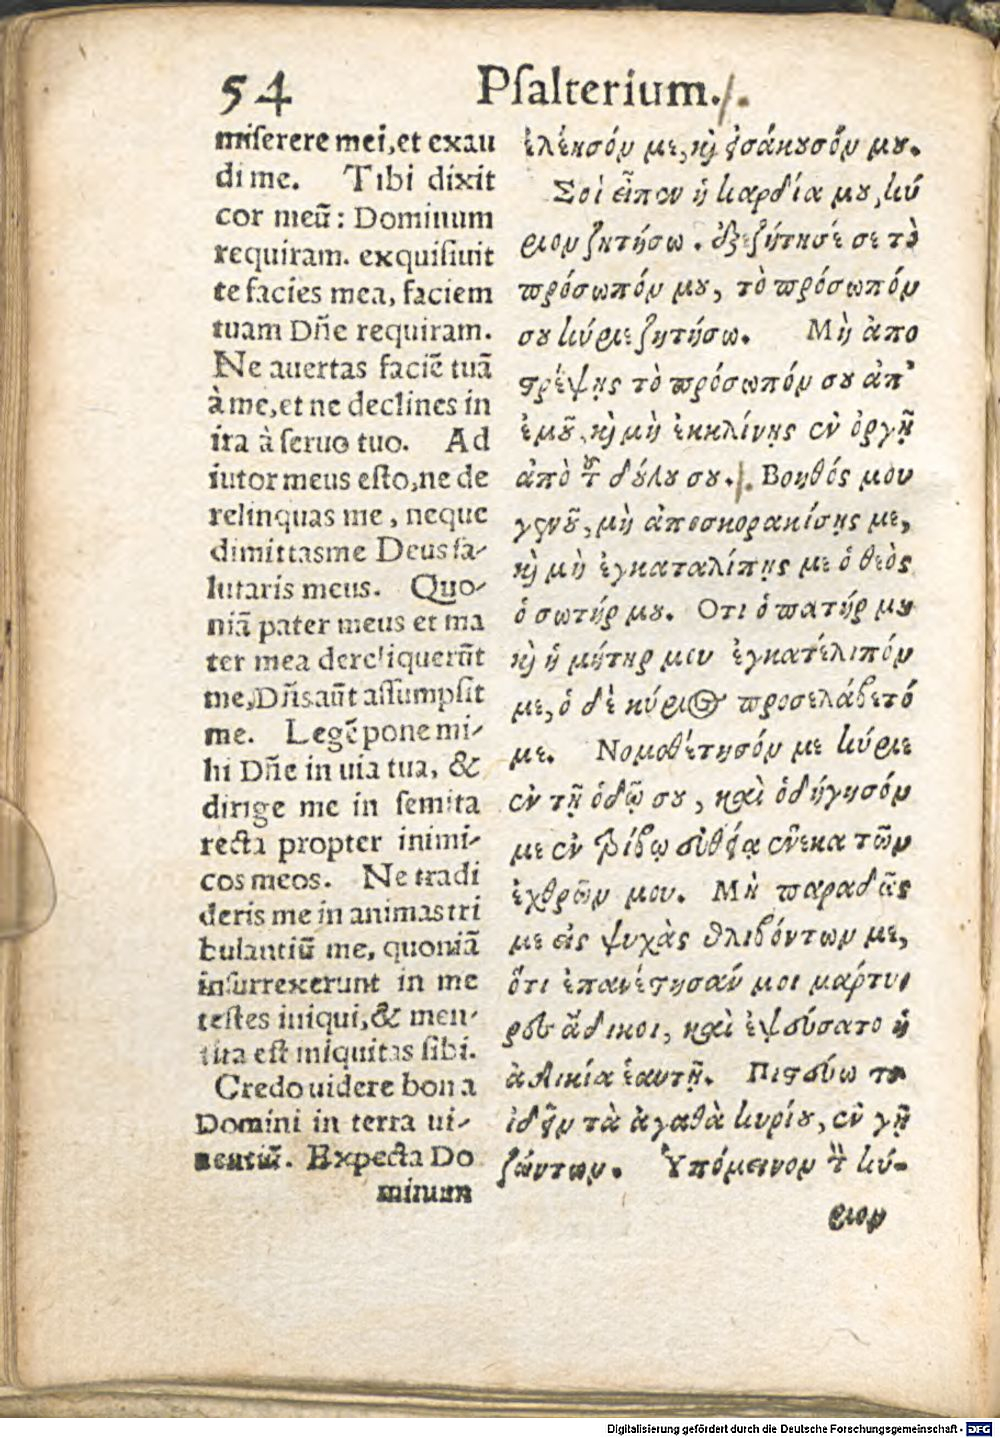 54 Psalterium.
miserere mei, et exau
di me. Tibi dixit
cor meũ: Dominum
requiram. exquisiuit
te facies mea, faciem
tuam Dñe requiram.
Ne auertas faciẽ tuã
à me, et ne declines in
ira à seruo tuo. Ad
iutor meus esto, ne de
relinquas me, neque
dimittas me Deus sa-
lutaris meus. Quo-
niã pater meus et ma
ter mea dereliquerũt
me, Dñs aũt assumpsit
me. Legẽ pone mi-
hi Dñe in uia tua, &
dirige me in semita
recta propter inimi-
cos meos. Ne tradi
deris me in animas tri
bulantiũ me, quoniã
insurrexerunt in me
testes iniqui, & men-
tita est iniquitas sibi.
Credo uidere bona
Domini in terra ui-
uentiũ. Expecta Do
minum
ἐλέησόν με, καὶ εἰσάκουσόν μου.
Σοὶ εἶπεν ἡ καρδία μου, κύ
ριον ζητήσω. ἐξεζήτησέ σε τὸ
πρόσωπόν μου, τὸ πρόσωπόν
σου κύριε ζητήσω. Μὴ ἀπο
στρέψῃς τὸ πρόσωπόν σου ἀπ'
ἐμοῦ, καὶ μὴ ἐκκλίνῃς ἐν ὀργῇ
ἀπὸ τοῦ δούλου σου. Βοηθός μου
γενοῦ, μὴ ἀποσκορακίσῃς με,
καὶ μὴ ἐγκαταλίπῃς με ὁ θεὸς
ὁ σωτήρ μου. Οτι ὁ πατήρ μου
καὶ ἡ μήτηρ μου ἐγκατέλιπόν
με, ὁ δὲ κύριος προσελάβετό
με. Νομοθέτησόν με κύριε
ἐν τῇ ὁδῷ σου, καὶ ὁδήγησόν
με ἐν τρίβῳ εὐθείᾳ ἕνεκα τῶν
ἐχθρῶν μου. Μὴ παραδῷς
με εἰς ψυχὰς θλιβόντων με,
ὅτι ἐπανέστησάν μοι μάρτυ
ρες ἄδικοι, καὶ ἐψεύσατο ἡ
ἀδικία ἑαυτῇ. Πιστεύω τοῦ
ἰδεῖν τὰ ἀγαθὰ κυρίου, ἐν γῇ
ζώντων. Ὑπόμεινον τὸν κύ-
ριον
Digitalisierung gefördert durch die Deutsche Forschungsgemeinschaft - DFG